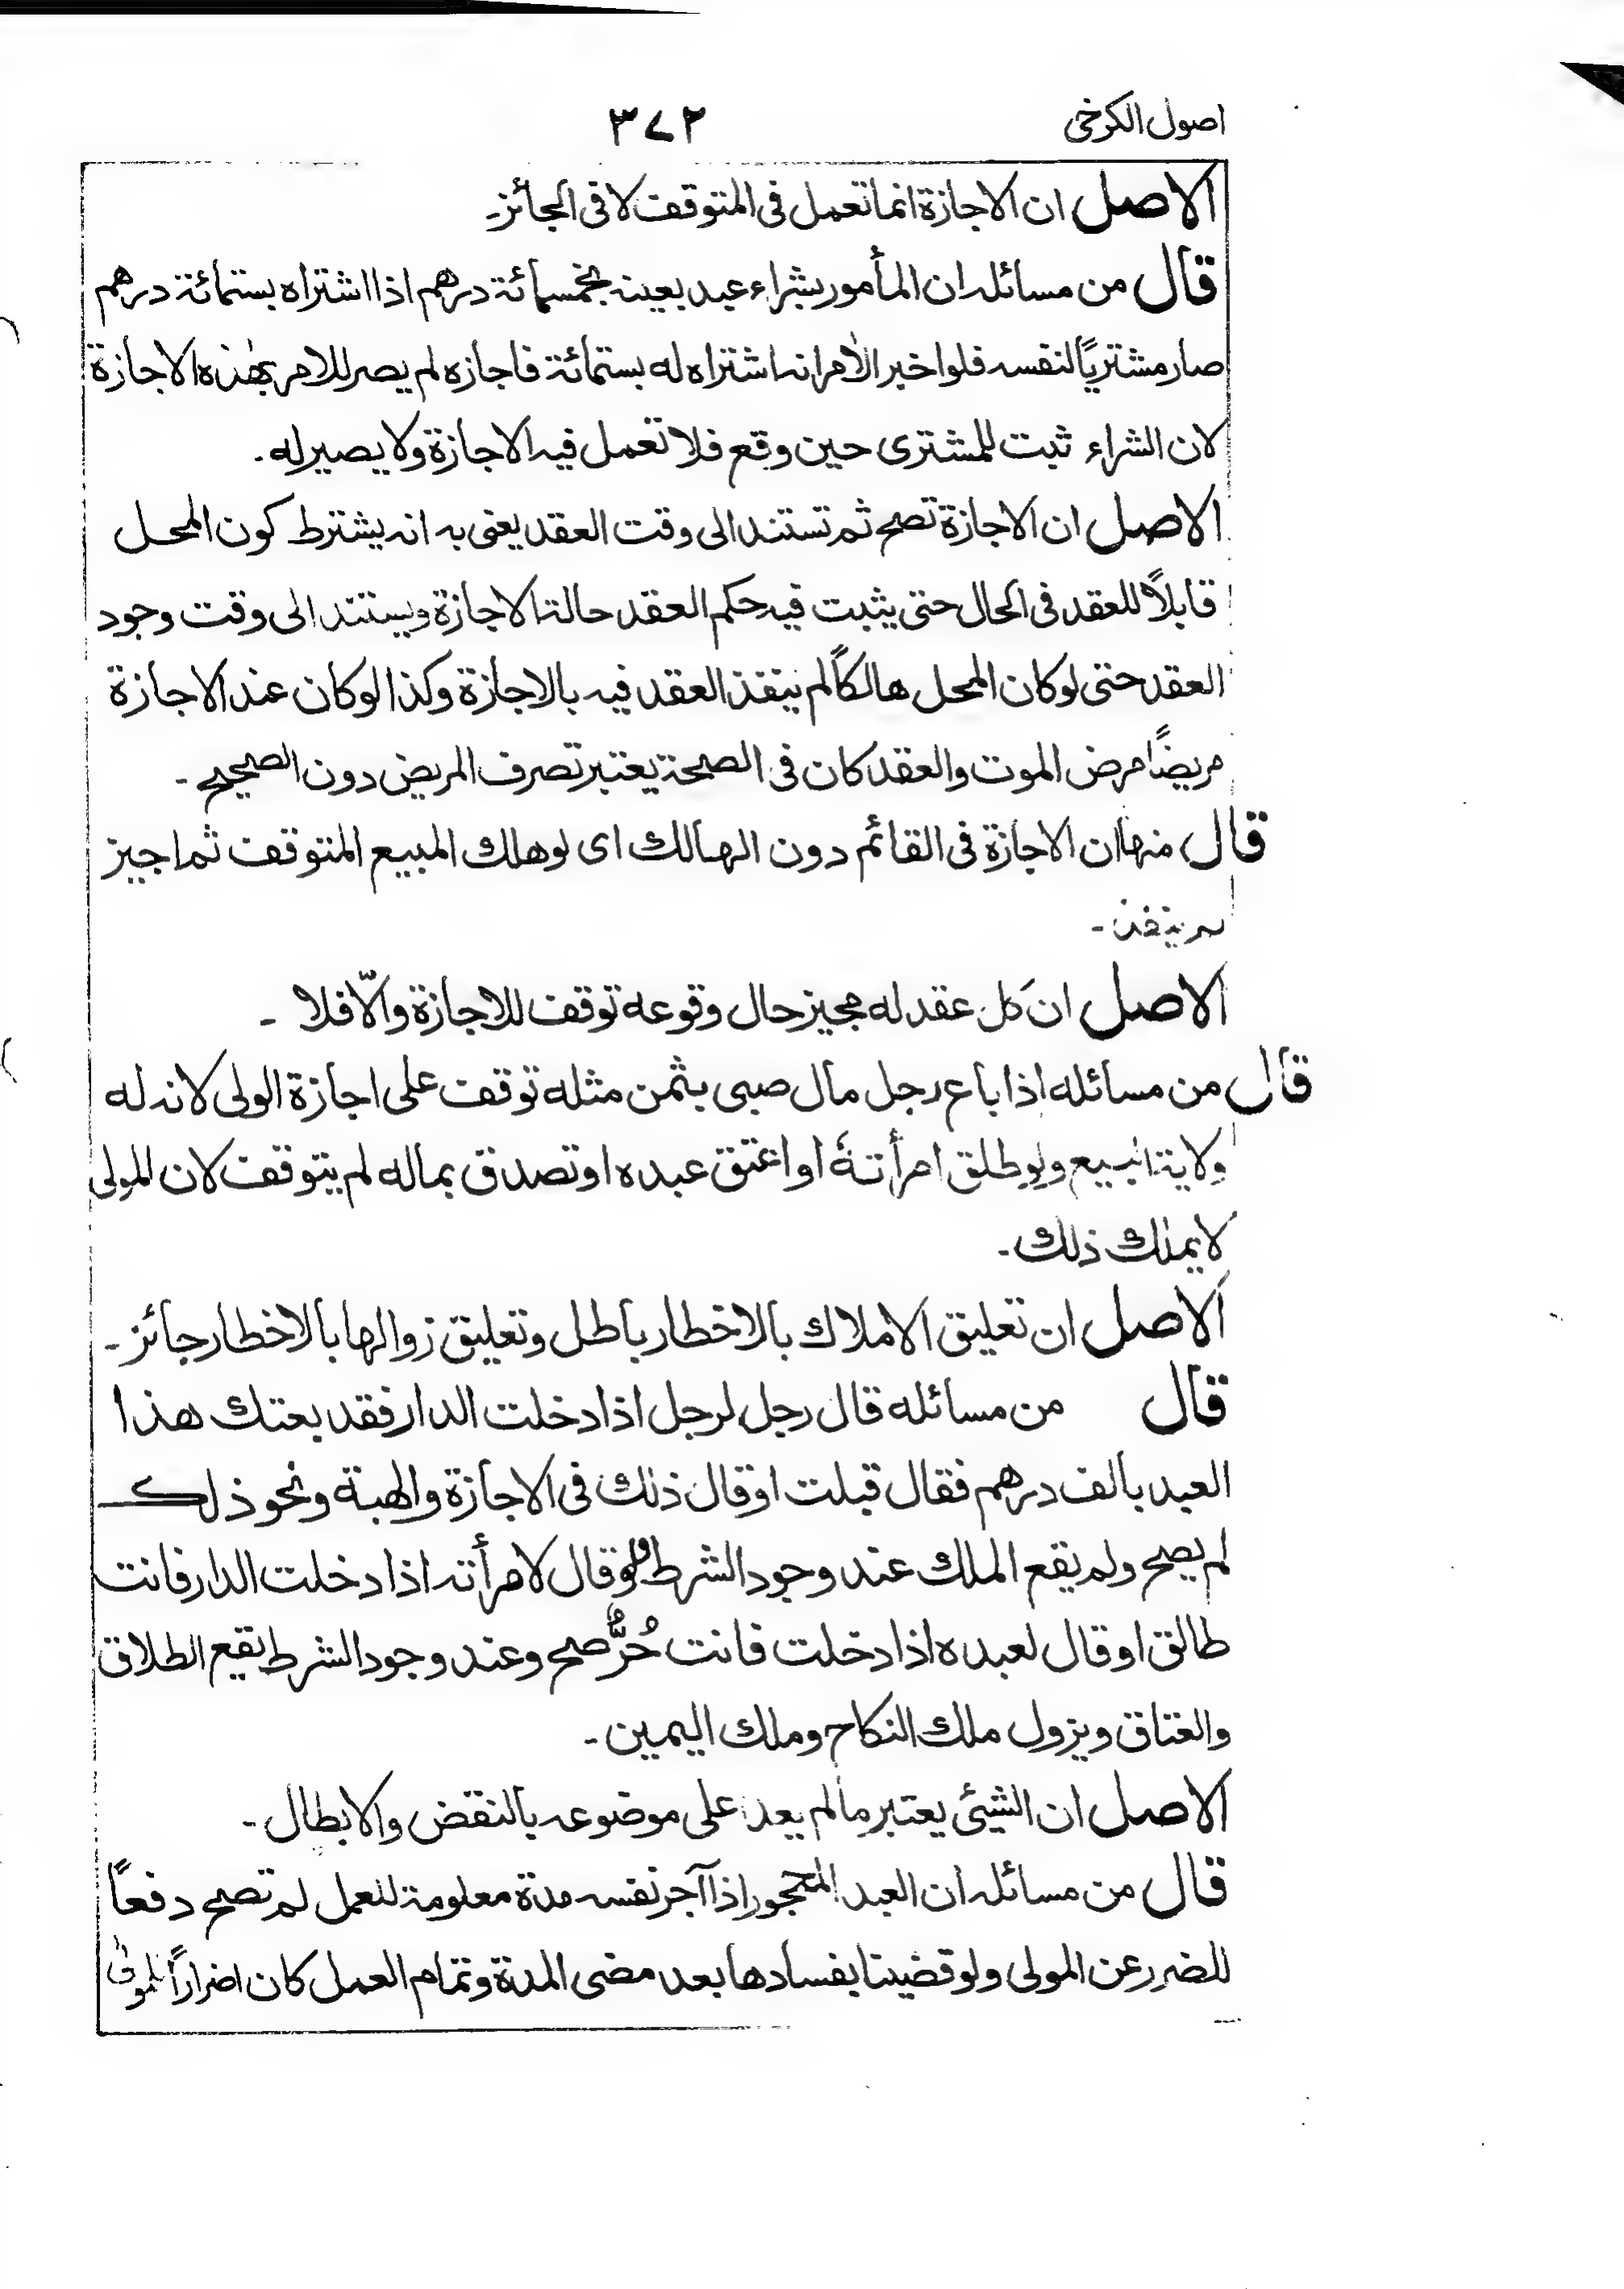 اصول الكرخى
٣٧٢
الاصل ان الاجازة انما تعمل فى المتوقف لا فى الجائز۔
قال من مسائله ان المأمور بشراء عبد بعينه بخمسمائة درهم اذا اشتراه بستمائة درهم
صار مشتريًا لنفسه فلو اخبر الاٰمر انه اشتراه له بستمائة فاجازه لم يصر للاٰمر بهٰذه الاجازة
لان الشراء ثبت للمشترى حين وقع فلا تعمل فيه الاجازة ولا يصير له۔
الاصل ان الاجازة تصح ثم تستند الى وقت العقد يعنى به انه يشترط كون المحل
قابلاً للعقد فى الحال حتى يثبت فيه حكم العقد حالة الاجازة ويستند الى وقت وجود
العقد حتى لو كان المحل هالكاً لم ينفذ العقد فيه بالاجازة وكذا لو كان عند الاجازة
مريضًا مرض الموت والعقد كان فى الصحة يعتبر تصرف المريض دون الصحيح۔
قال منها ان الاجازة فى القائم دون الهالك اى لو هلك المبيع المتوقف ثم اجيز
لم ينفذ۔
الاصل ان كل عقد له مجيز حال وقوعه توقف للاجازة والّا فلا۔
قال من مسائله اذا باع رجل مال صبى بثمن مثله توقف على اجازة الولى لانه له
ولاية البيع ولو طلق امرأتهٗ او اعتق عبده او تصدق بماله لم يتوقف لان المولى
لا يملك ذلك۔
الاصل ان تعليق الاملاك بالاخطار باطل وتعليق زوالها بالاخطار جائز۔
قال من مسائله قال رجل لرجل اذا دخلت الدار فقد بعتك هذا
العبد بالف درهم فقال قبلت او قال ذلك فى الاجازة والهبة ونحو ذلك
لم يصح ولم يقع الملك عند وجود الشرط ولو قال لامرأته اذا دخلت الدار فانت
طالق او قال لعبده اذا دخلت فانت حُرٌّ صح وعند وجود الشرط يقع الطلاق
والعتاق ويزول ملك النكاح وملك اليمين۔
الاصل ان الشيئ يعتبر ما لم يعد على موضوعه بالنقض والابطال۔
قال من مسائله ان العبد المحجور اذا آجر نفسه مدة معلومة لعمل لم تصح دفعاً
للضرر عن المولى ولو قضينا بفسادها بعد مضى المدة وتمام العمل كان اضراراً للمولٰى